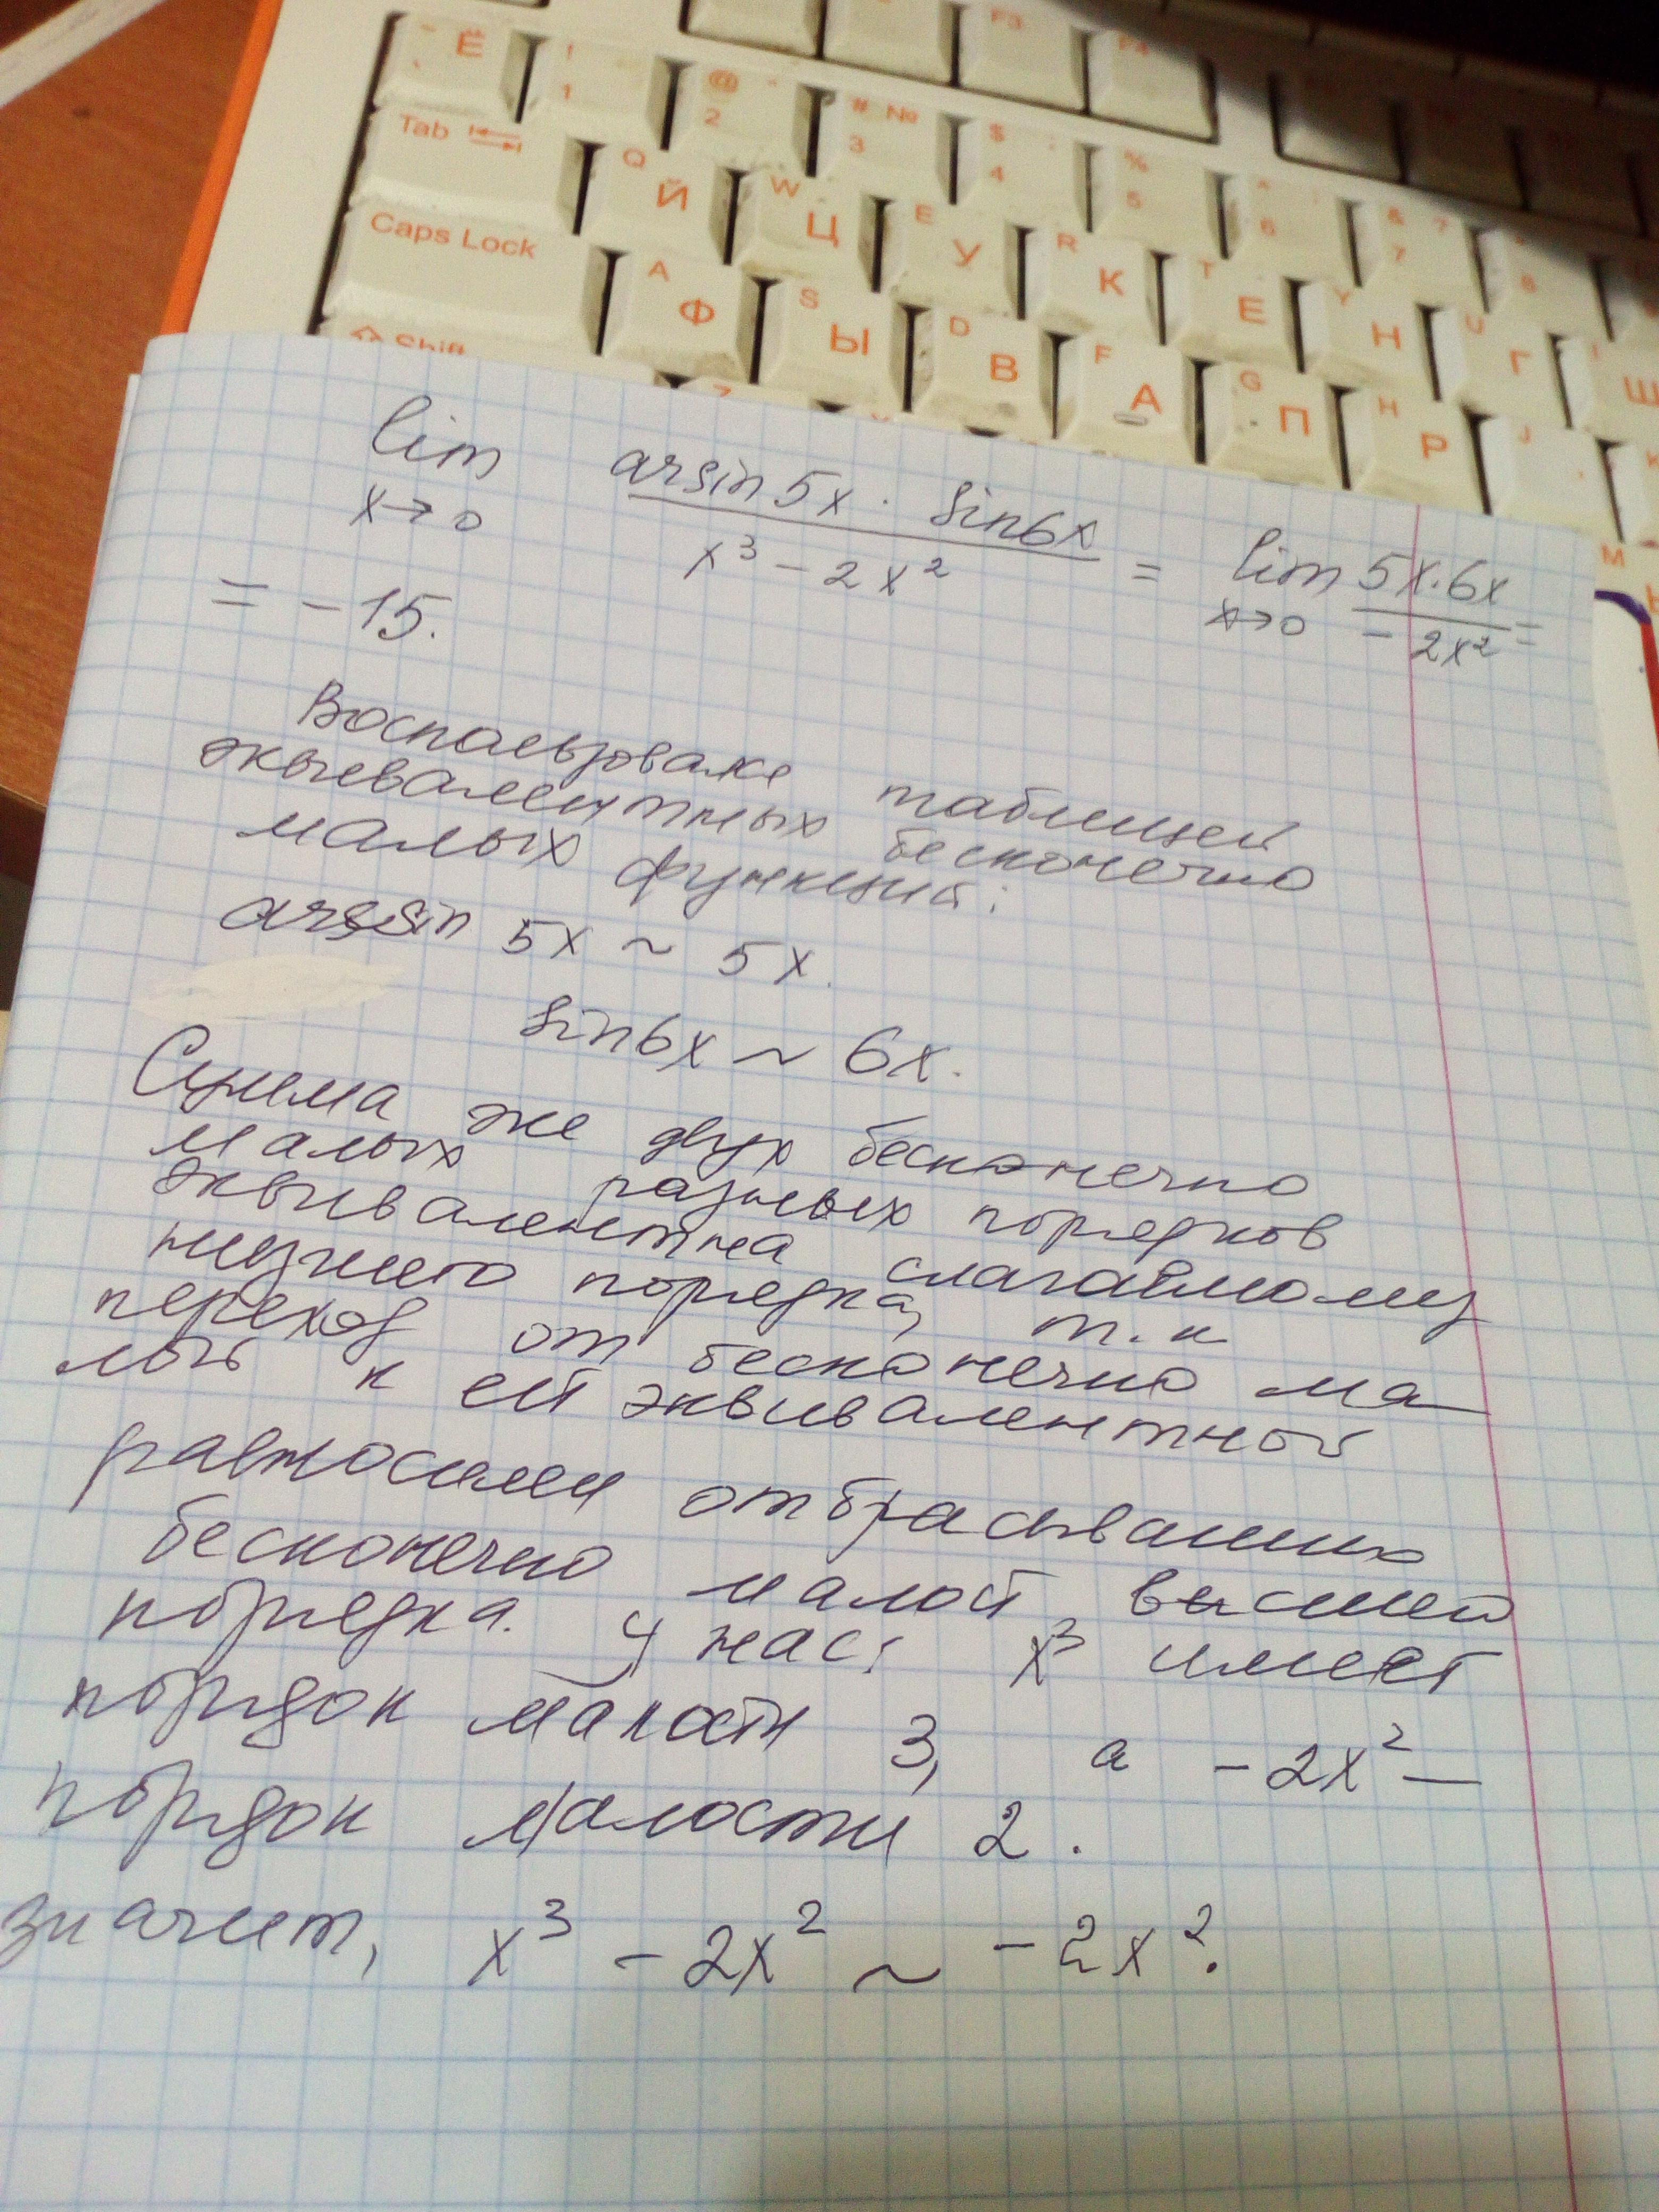 Ё ! 1 @ 2 # № 3 $ 4 % 5 6 & ? 7 8
F3 F4
Tab Q Й W Ц E У R К T Е Y Н U Г Ш
Caps Lock A Ф S Ы D В F А G П H Р J
Shift
M
lim arsin 5x · sin6x
x→0 x³ - 2x² = lim 5x·6x
x→0 - 2x² =
= -15.
Воспользоваже таблицей
эквивалентных бесконечно
малых функций:
arssin 5x ~ 5x.
sin6x ~ 6x.
Сумма же двух бесконечно
малых разных порядков
эквивалентна слагаемому
низшего порядка, т.к
переход от бесконечно ма-
лой к ей эквивалентной
равносилен отбрасыванию
бесконечно малой высшей
порядка. У нас: x³ имеет
порядок малости 3, а -2x² —
порядок малости 2.
значит, x³ - 2x² ~ -2x².